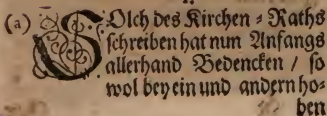 (a) SOlch des Kirchen = Raths
schreiben hat nun Anfangs
allerhand Bedencken / so
wol bey ein und andern ho=
ben